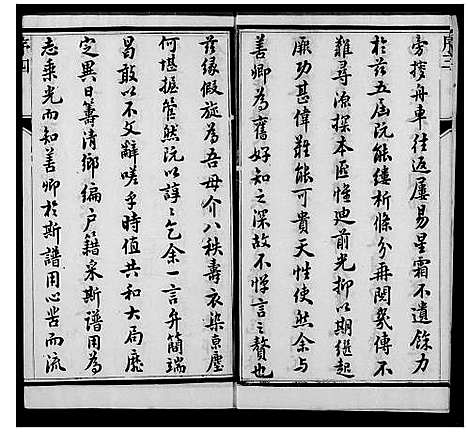 序三
旁搜舟車往返屢易星霜不遺餘力
於茲五届既能縷析條分冊閱幾傳不
難尋源探本匪惟迪前光抑以期繼起
厥功甚偉難能可貴天性使然余与
善卿為舊好知之深故不憚言之贅也
茲緣假旋為吾母介八秩壽衣染京塵
何堪握管然既以諄諄乞余一言弁簡端
曷敢以不文辭嗟乎時值共和大局麤
定異日籌清鄉編户籍采斯譜用為
志乘光而知善卿於斯譜用心苦而流
序四